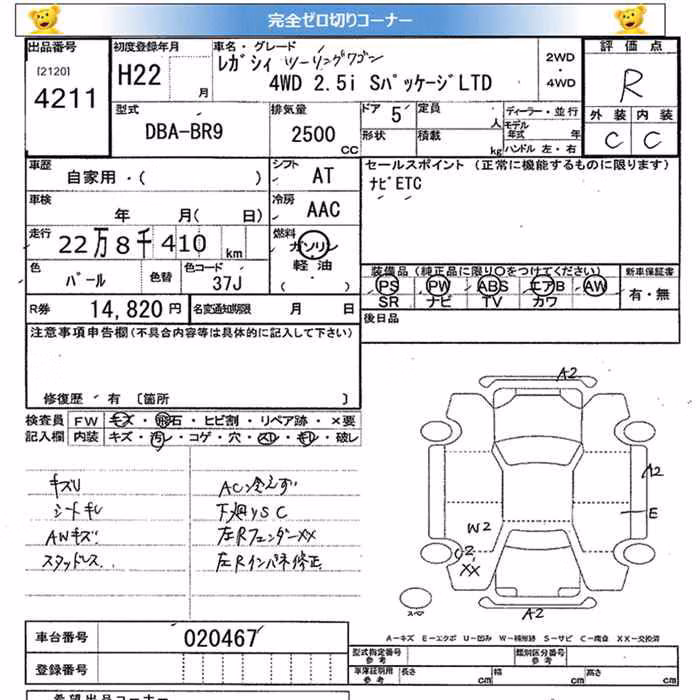 完全ゼロ切りコーナー
出品番号
[2120]
4211
初度登録年月
H22
月
車名・グレード
レガシィ ツーリングワゴン
4WD 2.5i SパッケージLTD
2WD
・
4WD
評価点
R
外装 内装
C C
型式
DBA-BR9
排気量
2500
cc
ドア 5
定員
人
形状
積載
kg
ディーラー・並行
モデル年式 年
ハンドル 左・右
車歴
自家用・( )
シフト
AT
車検
年 月( 日)
冷房
AAC
走行
22万8千410 km
燃料
ガソリン
・
軽油
( )
色
パール
色替
色コード
37J
R券 14,820 円
名変通知期限 月 日
セールスポイント (正常に機能するものに限ります)
ナビETC
装備品 (純正品に限り○をつけてください)
PS PW ABS エアB AW
SR ナビ TV カワ
新車保証書
有・無
後日品
注意事項申告欄(不具合内容等は具体的に記入して下さい)
修復歴・有 〔箇所 〕
検査員
記入欄
FW キズ・飛石・ヒビ割・リペア跡・×要
内装 キズ・汚レ・コゲ・穴・スレ・キレ・破レ
キズU
シートキレ
AWキズ
スタッドレス
AC冷えず
下廻りSC
左Rフェンダーxx
左Rインパネ修正
A2
A2
E
W2
2
XX
A2
スペア
A-キズ E-エクボ U-凹み W-補修跡 S-サビ C-腐食 XX-交換済
車台番号 020467
登録番号
型式指定番号
参考
類別区分番号
参考
車庫証明用
参考
長さ cm 幅 cm 高さ cm
希望出品コーナー